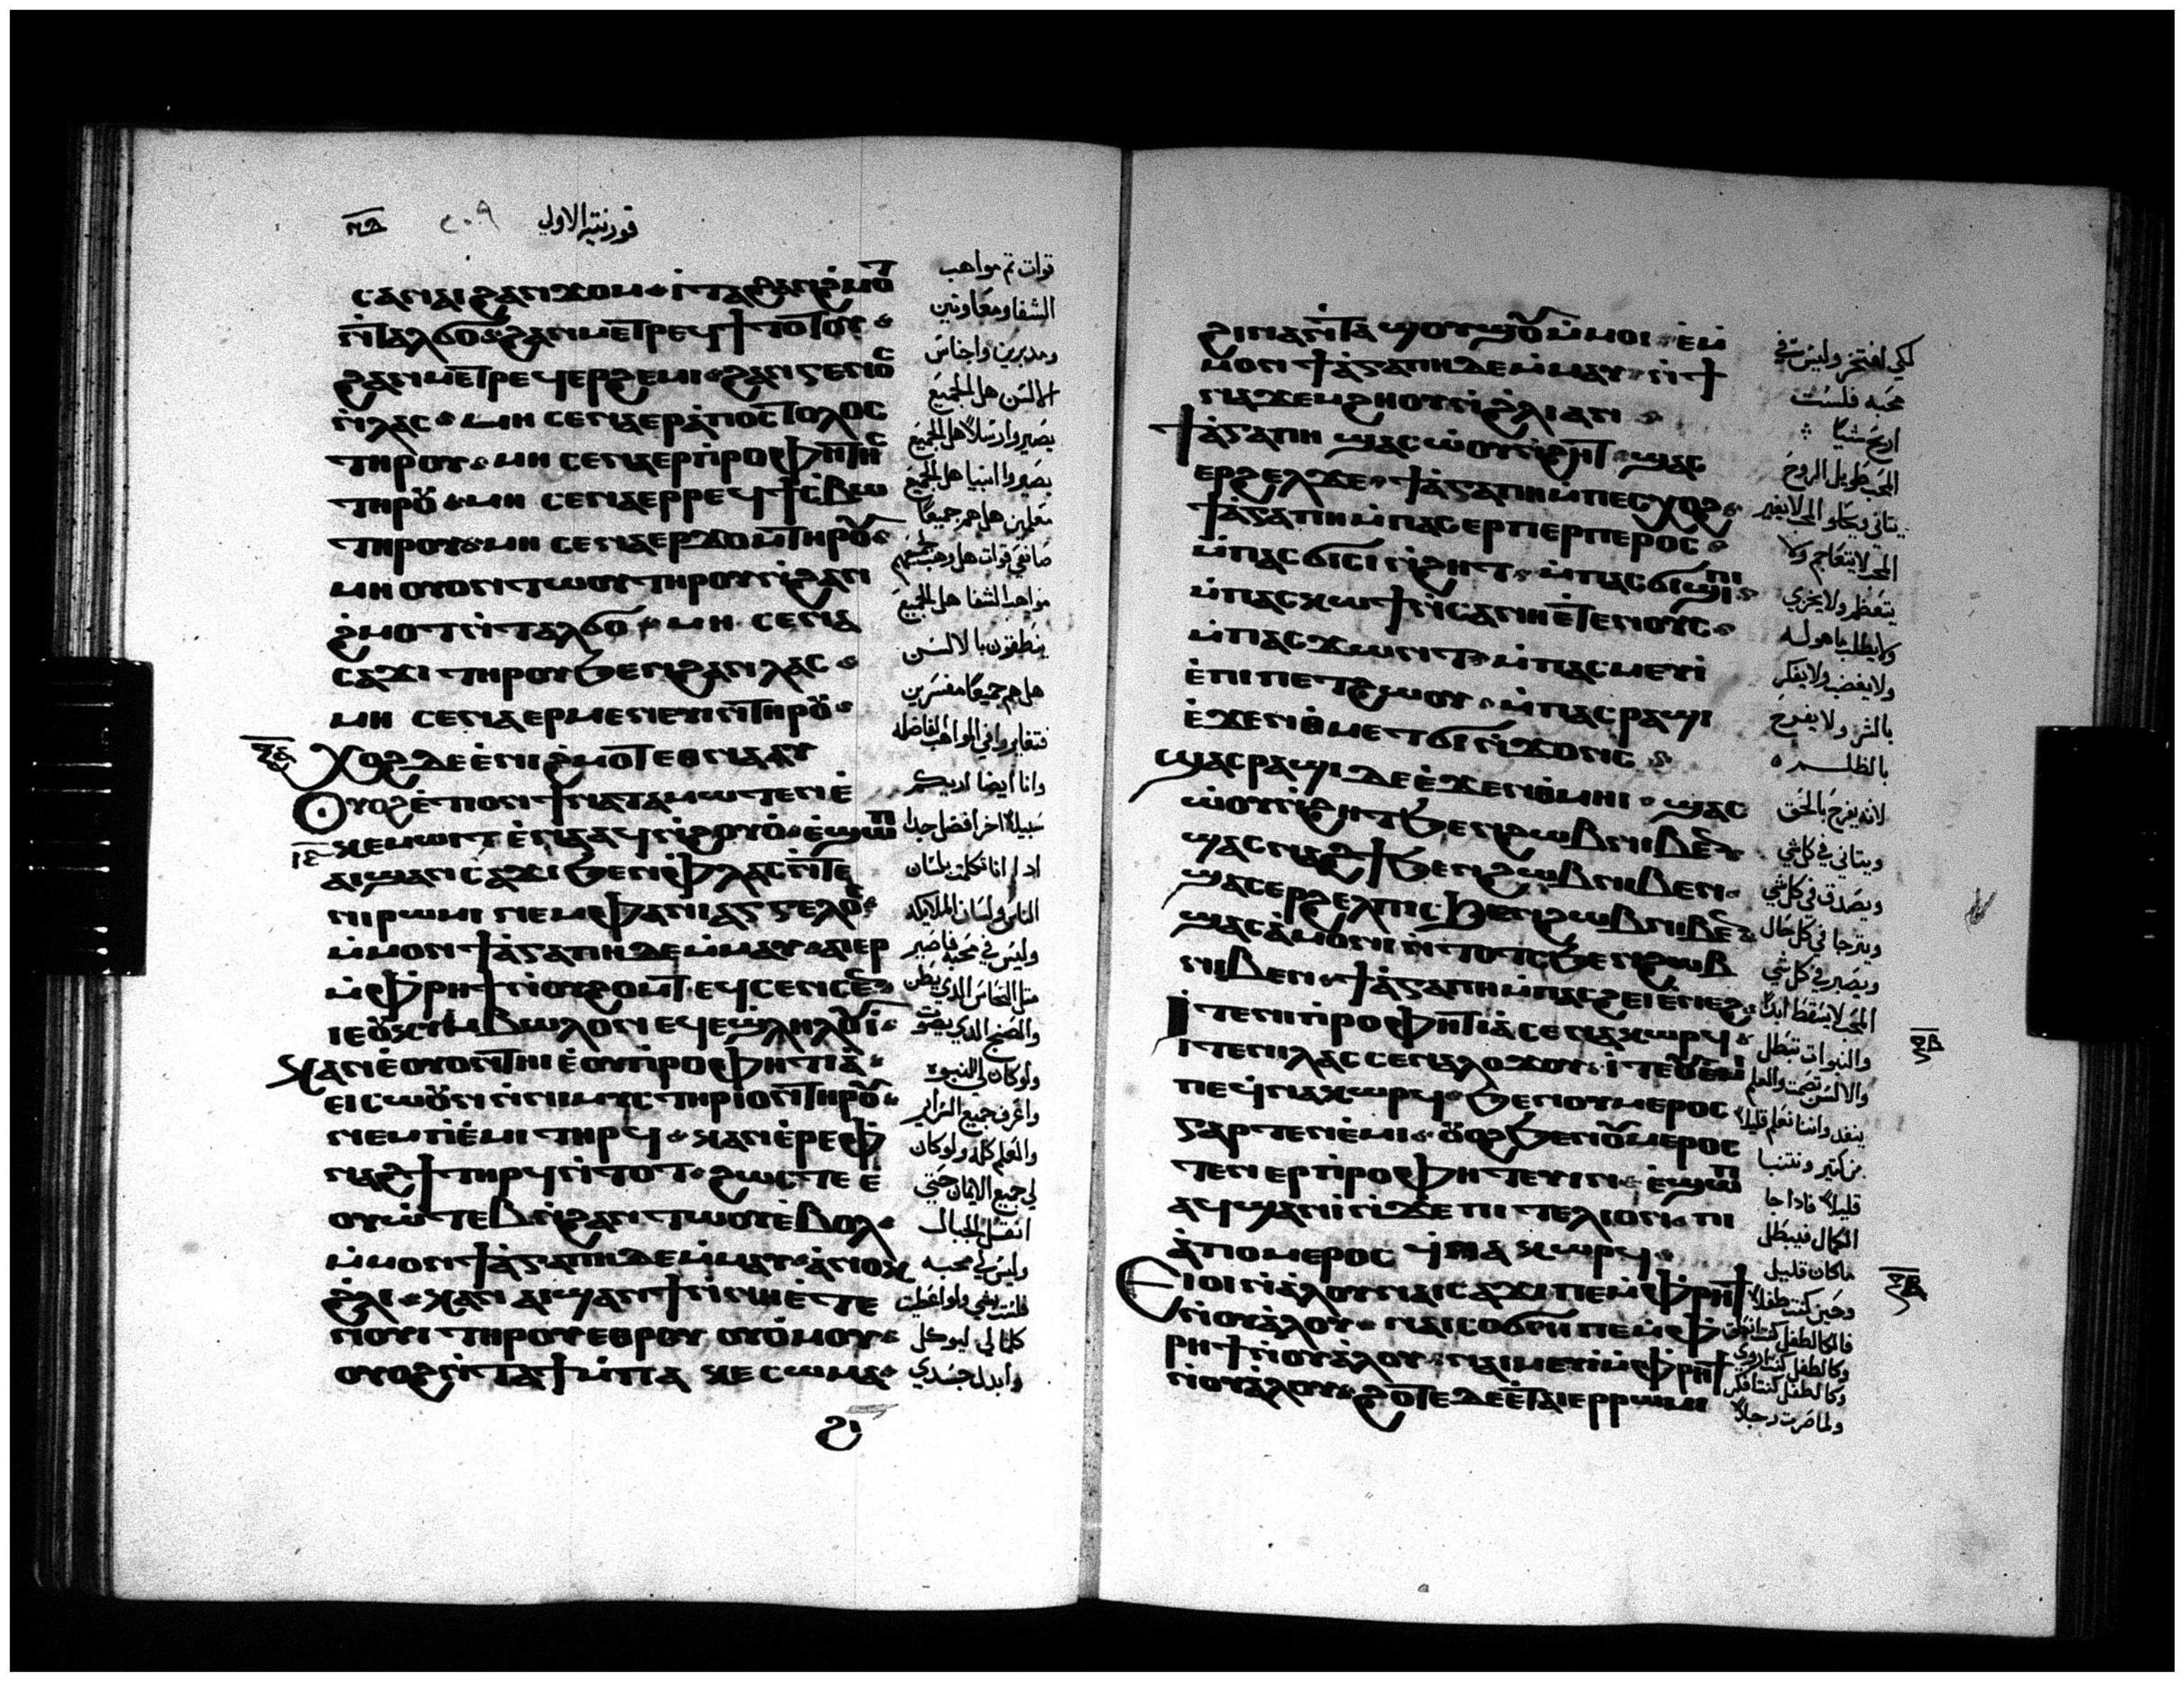 ⲡⲏ ⲥ̅٠٩ قورنتيه الاولي
ⲥⲁⲛⲁⲓ ϩⲁⲛϫⲟⲙ ⲓⲧⲁ ϩⲁⲛϩ̀ⲙⲟⲧ
ⲛ̀ⲧⲁⲗϭⲟ ϩⲁⲛⲙⲉⲧⲣⲉϥϯⲧⲟⲧⲟⲩ
ϩⲁⲛⲙⲉⲧⲣⲉϥⲉⲣϩⲉⲙⲓ ϩⲁⲛⲅⲉⲛⲟⲥ
ⲛ̀ⲗⲁⲥ ⲙⲏ ⲥⲉⲛⲁⲉⲣⲁ̀ⲡⲟⲥⲧⲟⲗⲟⲥ
ⲧⲏⲣⲟⲩ ⲙⲏ ⲥⲉⲛⲁⲉⲣⲡⲣⲟⲫⲏⲧⲏⲥ
ⲧⲏⲣⲟⲩ ⲙⲏ ⲥⲉⲛⲁⲉⲣⲣⲉϥϯⲥⲃⲱ
ⲧⲏⲣⲟⲩ ⲙⲏ ⲥⲉⲛⲁⲉⲣϫⲟⲙ ⲧⲏⲣⲟⲩ
ⲙⲏ ⲟⲩⲟⲛⲧⲱⲟⲩ ⲧⲏⲣⲟⲩ ⲛ̀ϩⲁⲛ
ϩ̀ⲙⲟⲧ ⲛ̀ⲧⲁⲗϭⲟ ⲙⲏ ⲥⲉⲛⲁ
ⲥⲁϫⲓ ⲧⲏⲣⲟⲩ ϧⲉⲛϩⲁⲛⲗⲁⲥ
ⲙⲏ ⲥⲉⲛⲁⲉⲣⲙⲉⲛⲉⲩⲓⲛ ⲧⲏⲣⲟⲩ
ⲭⲟϩ ⲇⲉ ⲉ̀ⲛⲓϩ̀ⲙⲟⲧ ⲉⲑⲛⲁⲁⲩ
Ⲟⲩⲟϩ ⲉ̀ⲧⲓ ⲟⲛ ϯⲛⲁⲧⲁⲙⲱⲧⲉⲛ ⲉ̀
ⲕⲉⲙⲱⲓⲧ ⲉ̀ⲛⲁⲁϥ ⲛ̀ϩⲟⲩⲟ̀ ⲉ̀ϣⲱⲡ
ⲁⲓϣⲁⲛⲥⲁϫⲓ ϧⲉⲛⲫⲗⲁⲥ ⲛ̀ⲧⲉ
ⲛⲓⲣⲱⲙⲓ ⲛⲉⲙ ⲫⲁ ⲛⲓⲁⲅⲅⲉⲗⲟⲥ
ⲙ̀ⲙⲟⲛ ϯⲁ̀ⲅⲁⲡⲏ ⲇⲉ ⲙ̀ⲙⲁⲩ ⲁⲓⲉⲣ
ⲙ̀ⲫⲣⲏϯ ⲛ̀ⲟⲩϩⲟⲙⲧ ⲉϥⲥⲉⲛⲥⲉⲛ
ⲓⲉ ⲟⲩⲕⲩⲙⲃⲱⲗⲟⲛ ⲉϥⲉϣⲗⲏⲗⲟⲩⲓ
Ⲕⲁⲛ ⲉ̀ⲟⲩⲟⲛⲧⲏⲓ ⲉ̀ⲟⲩⲡⲣⲟⲫⲏⲧⲓⲁ̀
ⲉⲓⲥⲱⲟⲩⲛ ⲛ̀ⲛⲓⲙⲩⲥⲧⲏⲣⲓⲟⲛ ⲧⲏⲣⲟⲩ
ⲛⲉⲙ ⲡⲓⲉ̀ⲙⲓ ⲧⲏⲣϥ ⲕⲁⲛ ⲉ̀ⲣⲉ ⲫ
ⲛⲁϩϯ ⲧⲏⲣϥ ⲛ̀ⲧⲟⲧ ϩⲱⲥⲧⲉ ⲉ̀
ⲟⲩⲱ̀ⲧⲉⲃ ⲛ̀ϩⲁⲛⲧⲱⲟⲩ ⲉ̀ⲃⲟⲗ
ⲙ̀ⲙⲟⲛ ϯⲁ̀ⲅⲁⲡⲏ ⲇⲉ ⲙ̀ⲙⲁⲩ ⲁ̀ⲛⲟⲕ
ϩ̀ⲗⲓ ⲕⲁⲛ ⲁⲓϣⲁⲛϯ ⲛ̀ⲛⲏⲉ̀ⲧⲉ
ⲛⲟⲩⲓ ⲧⲏⲣⲟⲩ ⲉⲑⲣⲟⲩ ⲟⲩⲟ̀ⲙⲟⲩ
ⲟⲩⲟϩ ⲛ̀ⲧⲁϯ ⲙ̀ⲡⲁ ⲕⲉ ⲥⲱⲙⲁ
ϩⲓ
قوات ثم مواهب
الشفا ومعاونين
ومدبرين واجناس
الالسن هل الجميع
يصيروا رسلا هل الجميع
يصيروا انبيا هل الجميع
معلمين هل هم جميعا
مواهب الشفا هل الجميع
ينطقون بالالسن
هل هم جميعا مفسرين
فتغايروا في المواهب الفاضله
وانا ايضا اريكم
سبيلا اخر افضل جدا
اذا انا تكلمت بلسان
الناس ولسان الملايكه
وليس في محبه فاصير
مثل النحاس الذي يطن
والصنج الذي يصوت
ولو كان لي النبوه
واعرف جميع السراير
والعلم كله ولو كان
لي جميع الايمان حتي
انقل الجبال
وليس لي محبه
فلست بشي ولو اعطيت
كلما لي ليوكل
وابذل جسدي
ϩⲓⲛⲁ ⲛ̀ⲧⲁ ϣⲟⲩϣⲟⲩ ⲙ̀ⲙⲟⲓ ⲉ̀ⲙ
ⲙⲟⲛ ϯⲁ̀ⲅⲁⲡⲏ ⲇⲉ ⲙ̀ⲙⲁⲩ ⲛ̀ϯ
ⲛⲁϫⲉⲙϩⲏⲟⲩ ⲛ̀ϩ̀ⲗⲓ ⲁⲛ
ϯⲁ̀ⲅⲁⲡⲏ ϣⲁⲥⲱ̀ⲟⲩⲛ̀ϩⲏⲧ ϣⲁⲥ
ⲉⲣϩⲉⲗϫⲉ ϯⲁ̀ⲅⲁⲡⲏ ⲙ̀ⲡⲉⲥⲭⲟϩ
ϯⲁ̀ⲅⲁⲡⲏ ⲙ̀ⲡⲁⲥⲉⲣⲡⲉⲣⲡⲉⲣⲟⲥ
ⲙ̀ⲡⲁⲥϭⲓⲥⲓ ⲛ̀ϩⲏⲧ ⲙ̀ⲡⲁⲥϭⲓϣⲓⲡⲓ
ⲙ̀ⲡⲁⲥⲕⲱϯ ⲛ̀ⲥⲁ ⲛⲏⲉ̀ⲧⲉⲛⲟⲩⲥ
ⲙ̀ⲡⲁⲥϫⲱⲛⲧ ⲙ̀ⲡⲁⲥⲙⲉⲩⲓ
ⲉ̀ⲡⲓⲡⲉⲧϩⲱⲟⲩ ⲙ̀ⲡⲁⲥⲣⲁϣⲓ
ⲉ̀ϫⲉⲛ ⲑⲙⲉⲧϭⲓⲛ̀ϫⲟⲛⲥ
ϣⲁⲥⲣⲁϣⲓ ⲇⲉ ⲉ̀ϫⲉⲛ ⲑⲙⲏⲓ ϣⲁⲥ
ⲱ̀ⲟⲩⲛ̀ϩⲏⲧ ϧⲉⲛϩⲱⲃ ⲛⲓⲃⲉⲛ
ϣⲁⲥⲛⲁϩϯ ϧⲉⲛϩⲱⲃ ⲛⲓⲃⲉⲛ
ϣⲁⲥⲉⲣϩⲉⲗⲡⲓⲥ ϧⲉⲛϩⲱⲃ ⲛⲓⲃⲉⲛ
ϣⲁⲥⲁ̀ⲙⲟⲛⲓ ⲛ̀ⲧⲟⲧⲥ ϧⲉⲛϩⲱⲃ
ⲛⲓⲃⲉⲛ ϯⲁ̀ⲅⲁⲡⲏ ⲙ̀ⲡⲁⲥϩⲉⲓ ⲉ̀ⲛⲉϩ
ⲓⲧⲉ ⲛⲓⲡⲣⲟⲫⲏⲧⲓⲁ̀ ⲥⲉⲛⲁⲕⲱⲣϥ
ⲓⲧⲉ ⲛⲓⲗⲁⲥ ⲥⲉⲛⲁⲗⲟϫⲟⲩ ⲓⲧⲉ ⲟⲩⲉⲙⲓ
ⲡⲉ ϥ̀ⲛⲁⲕⲱⲣϥ ϧⲉⲛ ⲟⲩⲙⲉⲣⲟⲥ
ⲅⲁⲣ ⲧⲉⲛⲉ̀ⲙⲓ ⲟⲩⲟϩ ϧⲉⲛ ⲟⲩⲙⲉⲣⲟⲥ
ⲧⲉⲛⲉⲣⲡⲣⲟⲫⲏⲧⲉⲩⲓⲛ ⲉ̀ϣⲱⲡ
ⲁϥϣⲁⲛⲓ̀ ⲛ̀ϫⲉ ⲡⲓⲧⲉⲗⲓⲟⲛ ⲡⲓ
ⲁ̀ⲡⲟⲙⲉⲣⲟⲥ ϥ̀ⲛⲁⲕⲱⲣϥ
Ⲉⲓⲟⲓ ⲛ̀ⲁ̀ⲗⲟⲩ ⲛⲁⲓⲥⲁϫⲓ ⲡⲉ ⲙ̀ⲫⲣⲏϯ
ⲛ̀ⲟⲩⲁ̀ⲗⲟⲩ ⲛⲁⲓⲥⲟϭⲛⲓ ⲡⲉ ⲙ̀ⲫ
ⲣⲏϯ ⲛ̀ⲟⲩⲁ̀ⲗⲟⲩ ⲛⲁⲓⲙⲉⲩⲓ ⲙ̀ⲫⲣⲏϯ
ⲛ̀ⲟⲩⲁ̀ⲗⲟⲩ ϩⲟⲧⲉ ⲇⲉ ⲉ̀ⲧⲁⲓⲉⲣⲣⲱⲙⲓ
لكي افتخر وليس في
محبه فلست
اربح شيا
المحب طويل الروح
المحب لا يتعاجم ولا
يتعظم ولا يخزي
ولا يطلب ما هو له
ولا يغضب ولا يفكر
بالشر ولا يفرح
بالظلم
لانه يفرح بالحق
ويتاني في كل شي
ويصدق في كل شي
ويترجا في كل حال
ويصبر في كل شي
المحب لا يسقط ابدا
والنبوات تبطل
والالسن تصمت والعلم
ينفد واننا نعلم قليلا
من كثير ونتنبا
قليلا فاذا جا
الكمال فيبطل
ماكان قليل
وحين كنت طفلا
ولما صرت رجلا